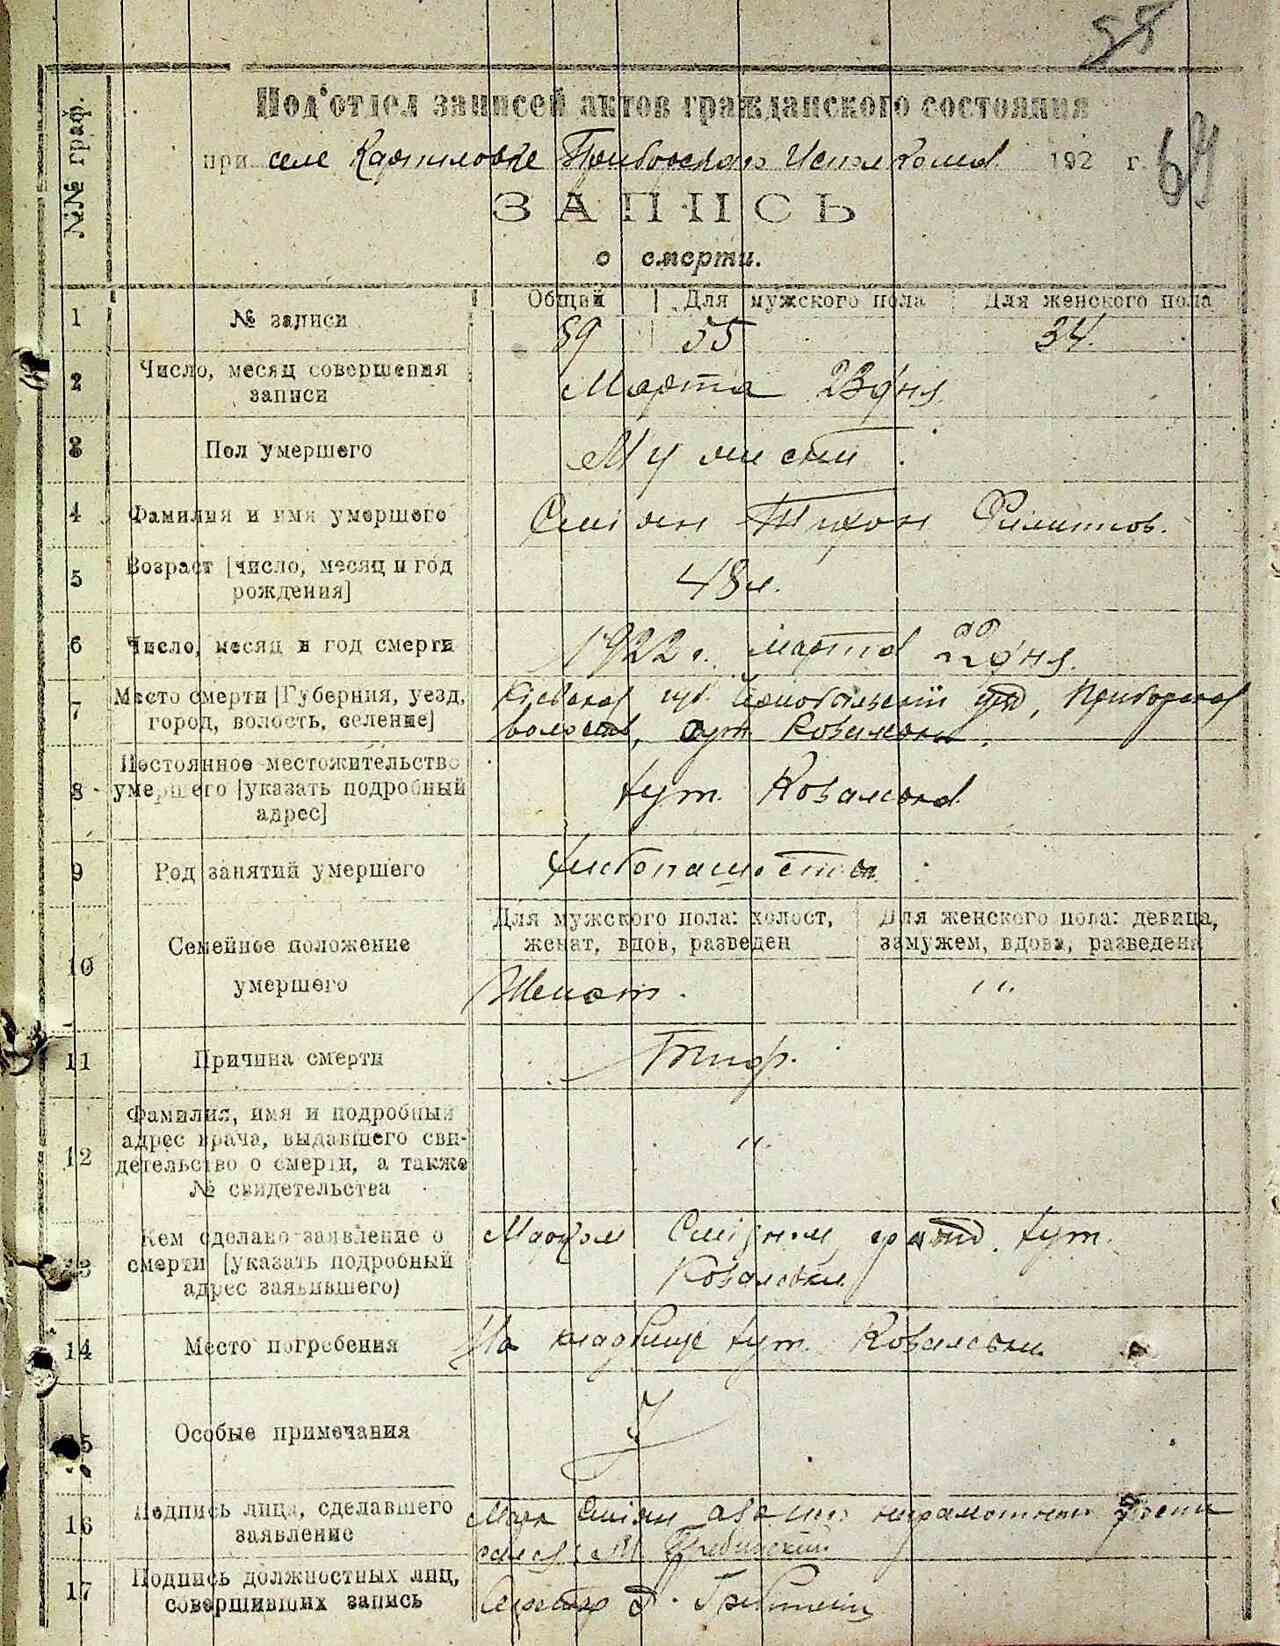 58
№№ граф.
Под'отдел записей актов гражданского состояния
при селе Карпиловке Исполкома 192 г.
64
ЗАПИСЬ
о смерти.
Общий Для мужского пола Для женского пола
1 № записи 89 55 34
2 Число, месяц совершения
записи Марта 23 дня
3 Пол умершего Мужеский
4 Фамилия и имя умершего Сміян Тихон Филиппов.
5 Возраст [число, месяц и год
рождения] 48 л.
6 Число, месяц и год смерти 1922 г. марта 22 дня.
7 Место смерти [Губерния, уезд,
город, волость, селение]
Киевская губ. Чернобыльский уезд, Приборская
волость, хут. Ковалевка.
8 Постоянное местожительство
умершего [указать подробный
адрес] хут. Ковалевка
9 Род занятий умершего хлебопашество
10 Семейное положение
умершего
Для мужского пола: холост,
женат, вдов, разведен
Для женского пола: девица,
замужем, вдова, разведена
Женат. "
11 Причина смерти Тиф.
12 Фамилия, имя и подробный
адрес врача, выдавшего сви-
детельство о смерти, а также
№ свидетельства "
13 Кем сделано заявление о
смерти [указать подробный
адрес заявившего)
Марком Сміяном, хут.
Ковалевки
14 Место погребения На кладбище хут. Ковалевки
15 Особые примечания
16 Подпись лица, сделавшего
заявление
Марк Сміян а за него неграмотного
17 Подпись должностных лиц,
совершивших запись